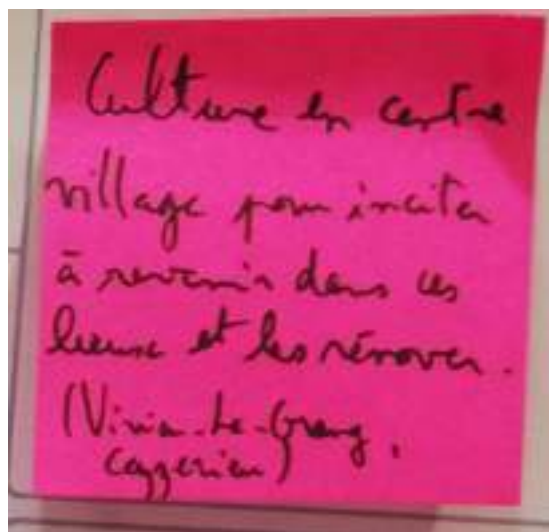 Culture en centre
village pour inciter
à revenir dans ces
lieux et les rénover.
(Vivier-Le-Grand,